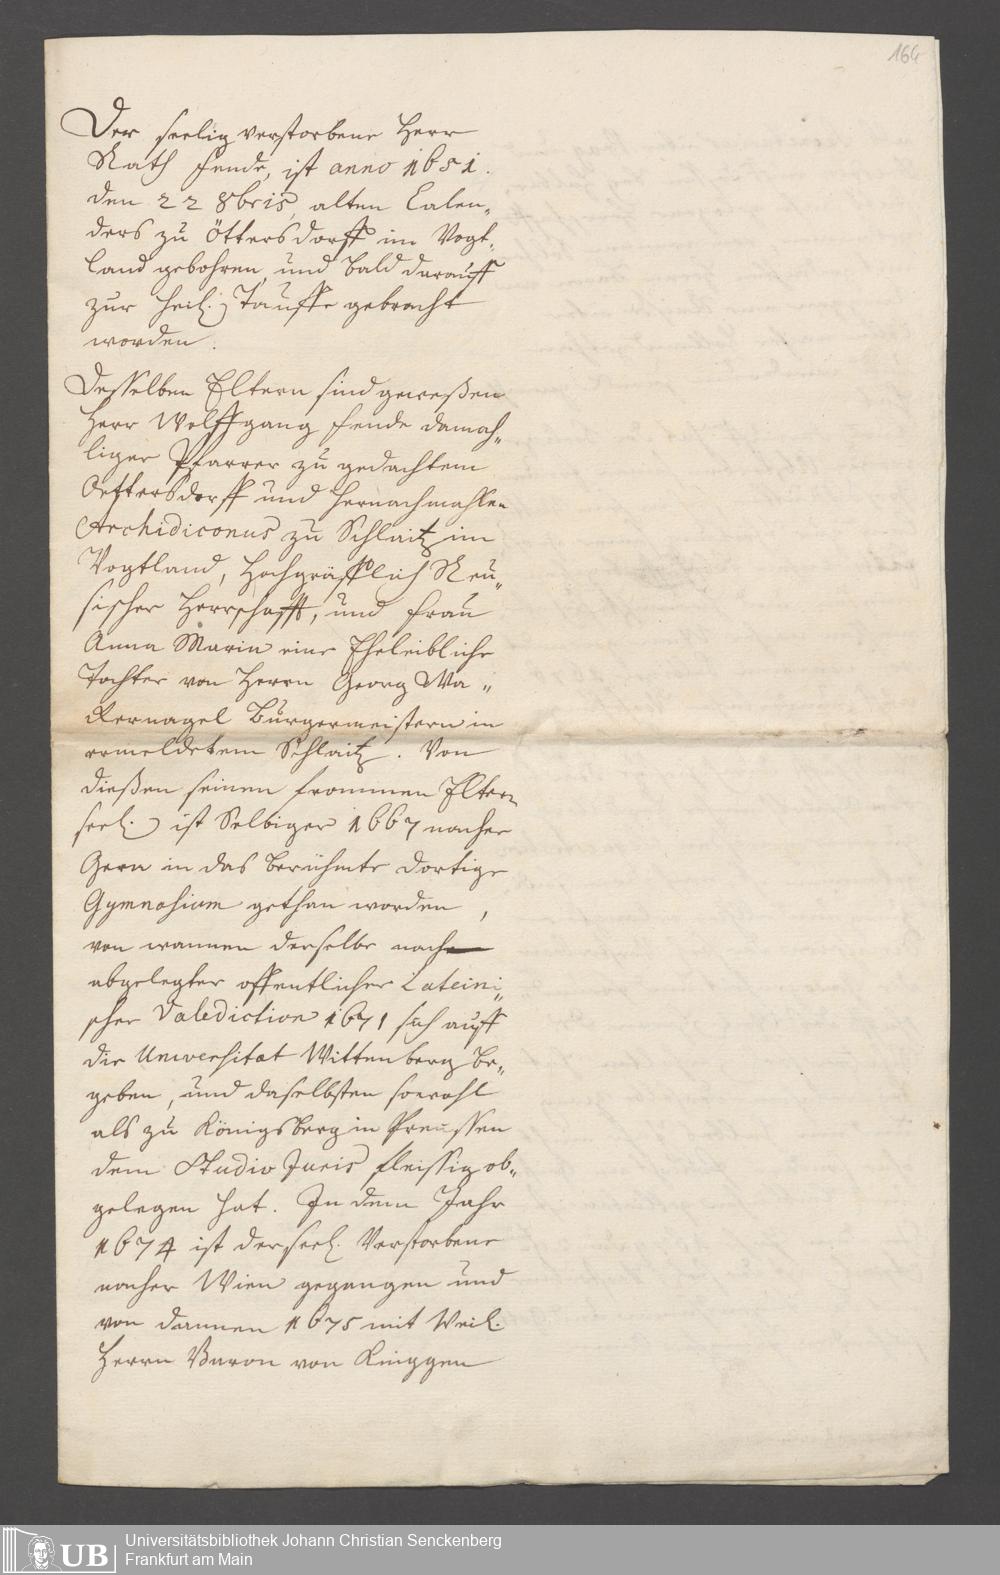 164
Der seelig verstorbene Herr
Rath Fende, ist anno 1651.
den 22 8bris, alten Calen„
ders zu Öttersdorff im Vogt„
land gebohren, und bald darauff
zur heil. Tauffe gebracht
worden.
Desselben Eltern sind geweßen
Herr Wolffgang Fende damah„
liger Pfarrer zu gedachtem
Oettersdorff und hernachmahlen
Archidiconus zu Schlaitz im
Vogtland, Hochgräfflich Reu„
sischer Herrschafft, und Frau
Anna Maria eine Eheleibliche
Tochter von Herrn Georg Wa„
ckernagel Bürgermeistern in
ermeldetem Schlaitz. Von
dießen seinen frommen Eltern
seel. ist Selbiger 1667 nacher
Gera in das berühmte dortige
Gymnasium gethan worden,
von wannen derselbe nach
abgelegter offentlicher Lateini„
scher Valediction 1671 sich auff
die Universitæt Wittenberg be„
geben, und daselbsten sowohl
als zu Königsberg in Preussen
dem Studio Juris fleissig ob„
gelegen hat. In dem Jahr
1674 ist der seel. Verstorbene
nacher Wien gegangen und
von dannen 1675 mit Weil.
Herrn Baron von Kniggen
UB
Universitätsbibliothek Johann Christian Senckenberg
Frankfurt am Main